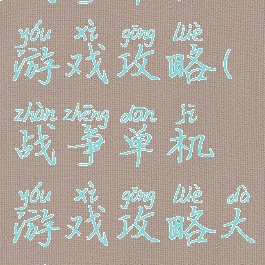 yóu xì gōng lüè
游戏攻略(
zhàn zhēng dān jī
战争单机
yóu xì gōng lüè dà
游戏攻略大